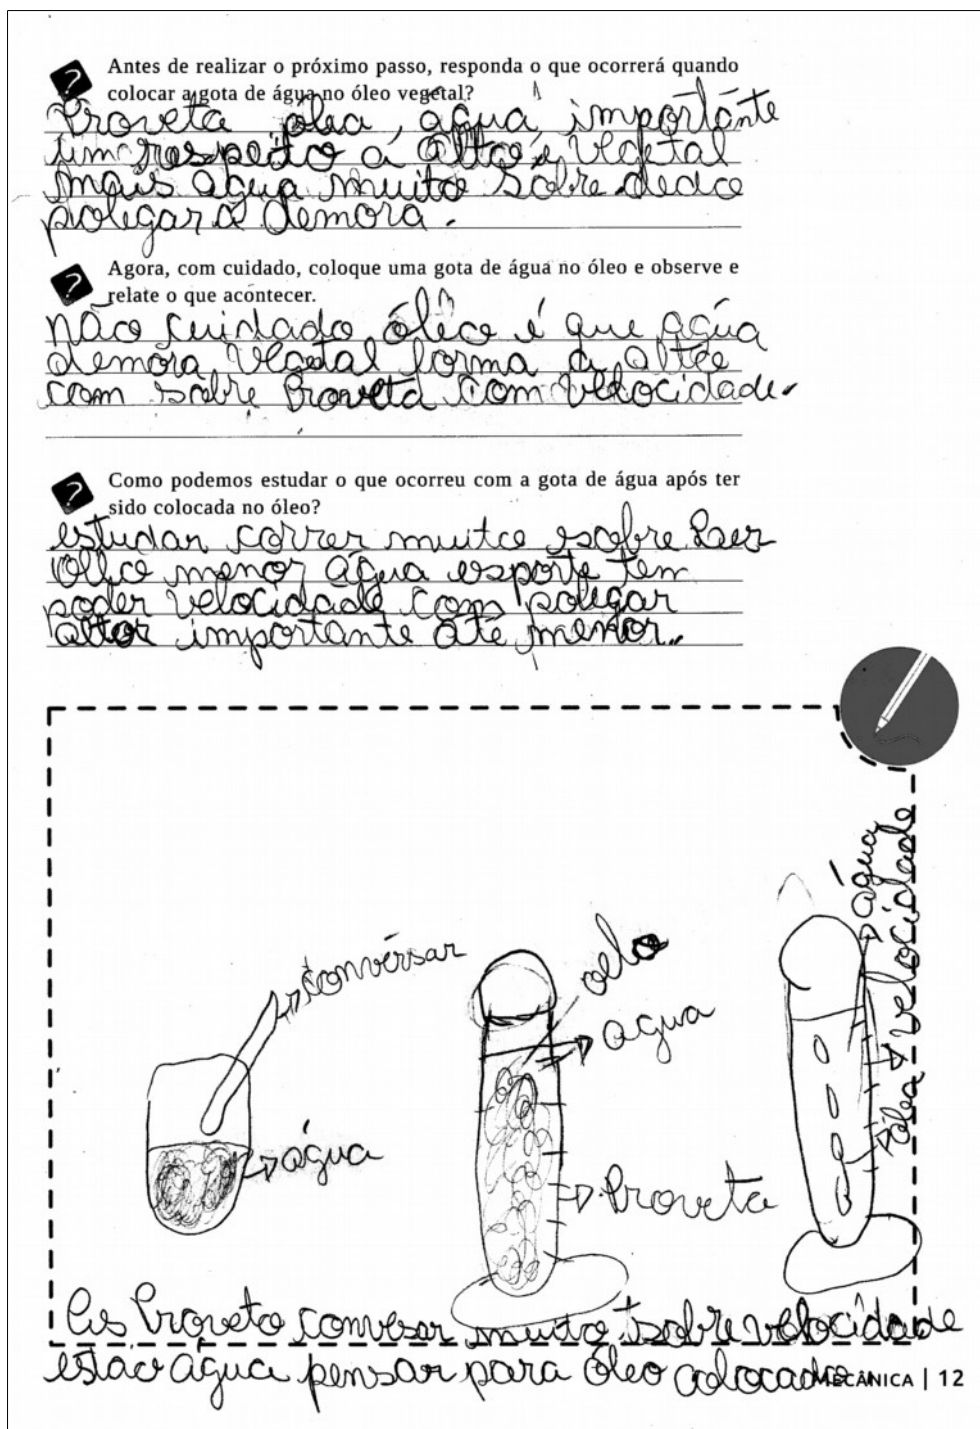 Antes de realizar o próximo passo, responda o que ocorrerá quando
colocar a gota de água no óleo vegetal?
Proveta óleo, água importante
um respeito a altoe é Vegetal
mais agua muito Sobre dedo
polegar a demora.
Agora, com cuidado, coloque uma gota de água no óleo e observe e
relate o que acontecer.
não cuidado óleo é que agúa
demora Vegetal forma a altoe
com sobre Proveta com Velocidade.
Como podemos estudar o que ocorreu com a gota de água após ter
sido colocada no óleo?
estudar correr muito sobre
menor água esporte tem
poder velocidade com polegar
importante até menor.
convérsar
água
água
óleo velocidade
agua
água
Proveta
Proveto conversar muito sobre velocidade
estão água pensar para óleo colocado
MECÂNICA | 12